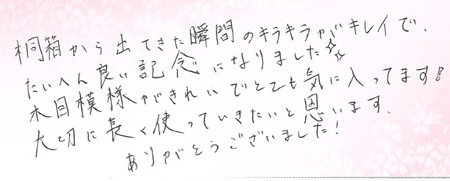 桐箱から出てきた瞬間のキラキラがキレイで、
たいへん良い記念になりました✨
木目模様がきれいでとても気に入ってます!
大切に長く使っていきたいと思います。
ありがとうございました!